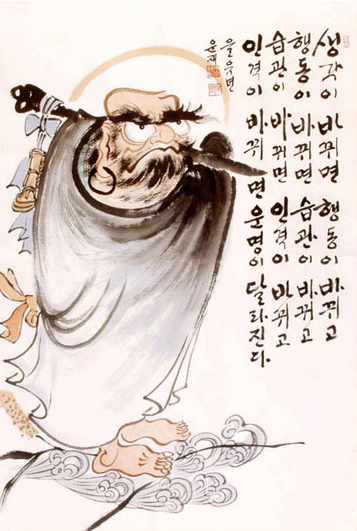 생각이 바뀌면 행동이 바뀌고
행동이 바뀌면 습관이 바뀌고
습관이 바뀌면 인격이 바뀌고
인격이 바뀌면 운명이 달라진다.
을유년